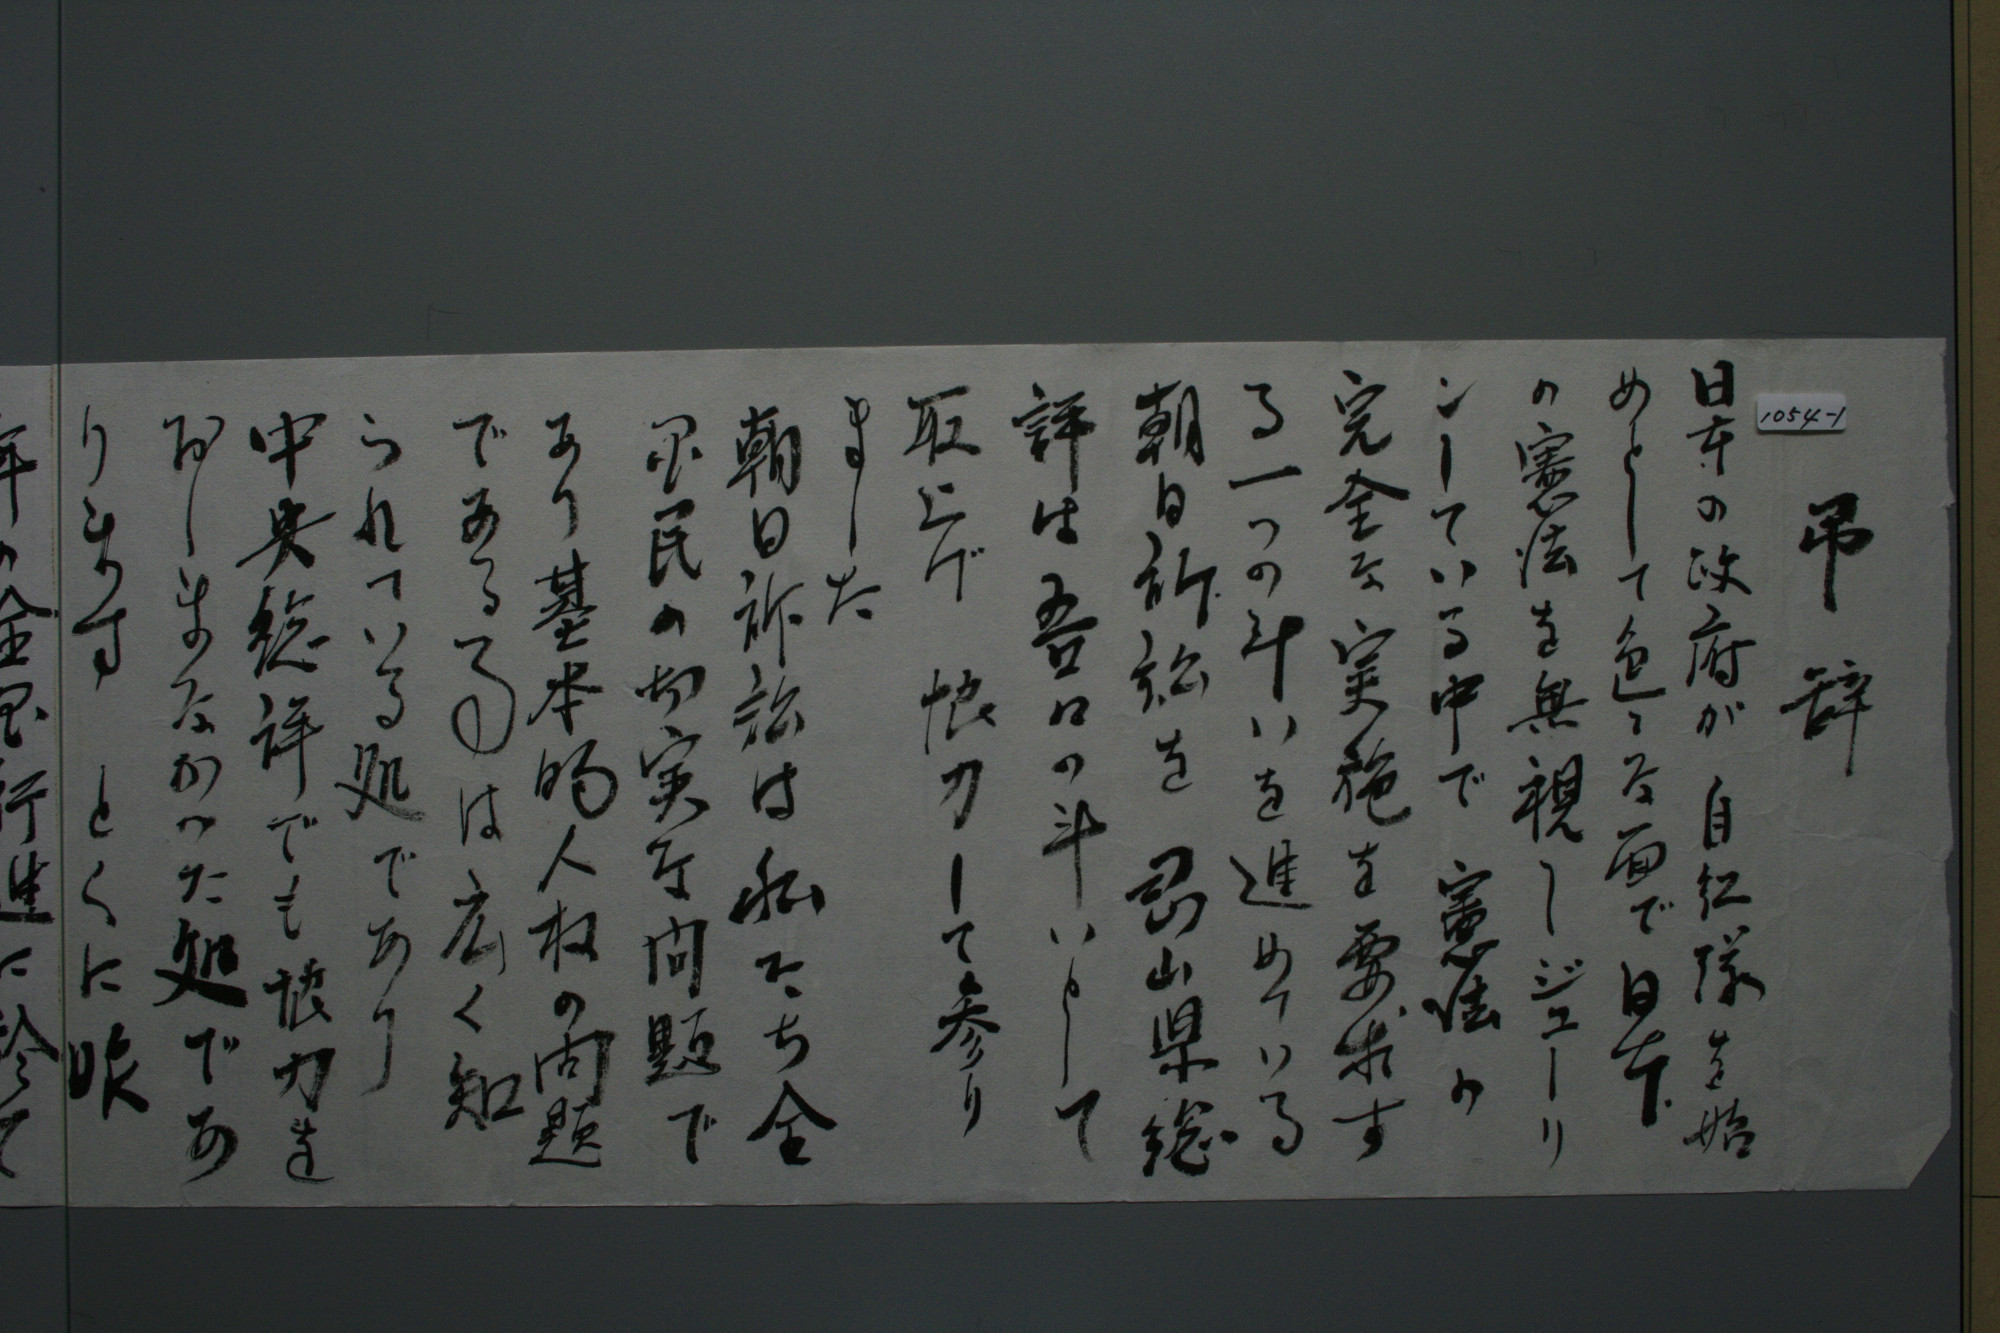 1054-1
弔辞
日本の政府が自衛隊を始
めとして色々な面で日本
の憲法を無視しジューリ
ンしている中で憲法の
完全な実施を要求す
る一つの斗いを進めている
朝日訴訟を岡山県総
評は吾々の斗いとして
取上げ協力して参り
ました
朝日訴訟は私たち全
国民の切実な問題で
あり基本的人权の問題
である事は広く知
られている処であり
中央総評でも協力を
おしまなかった処であ
ります とくに昨
年の全国行進に於て